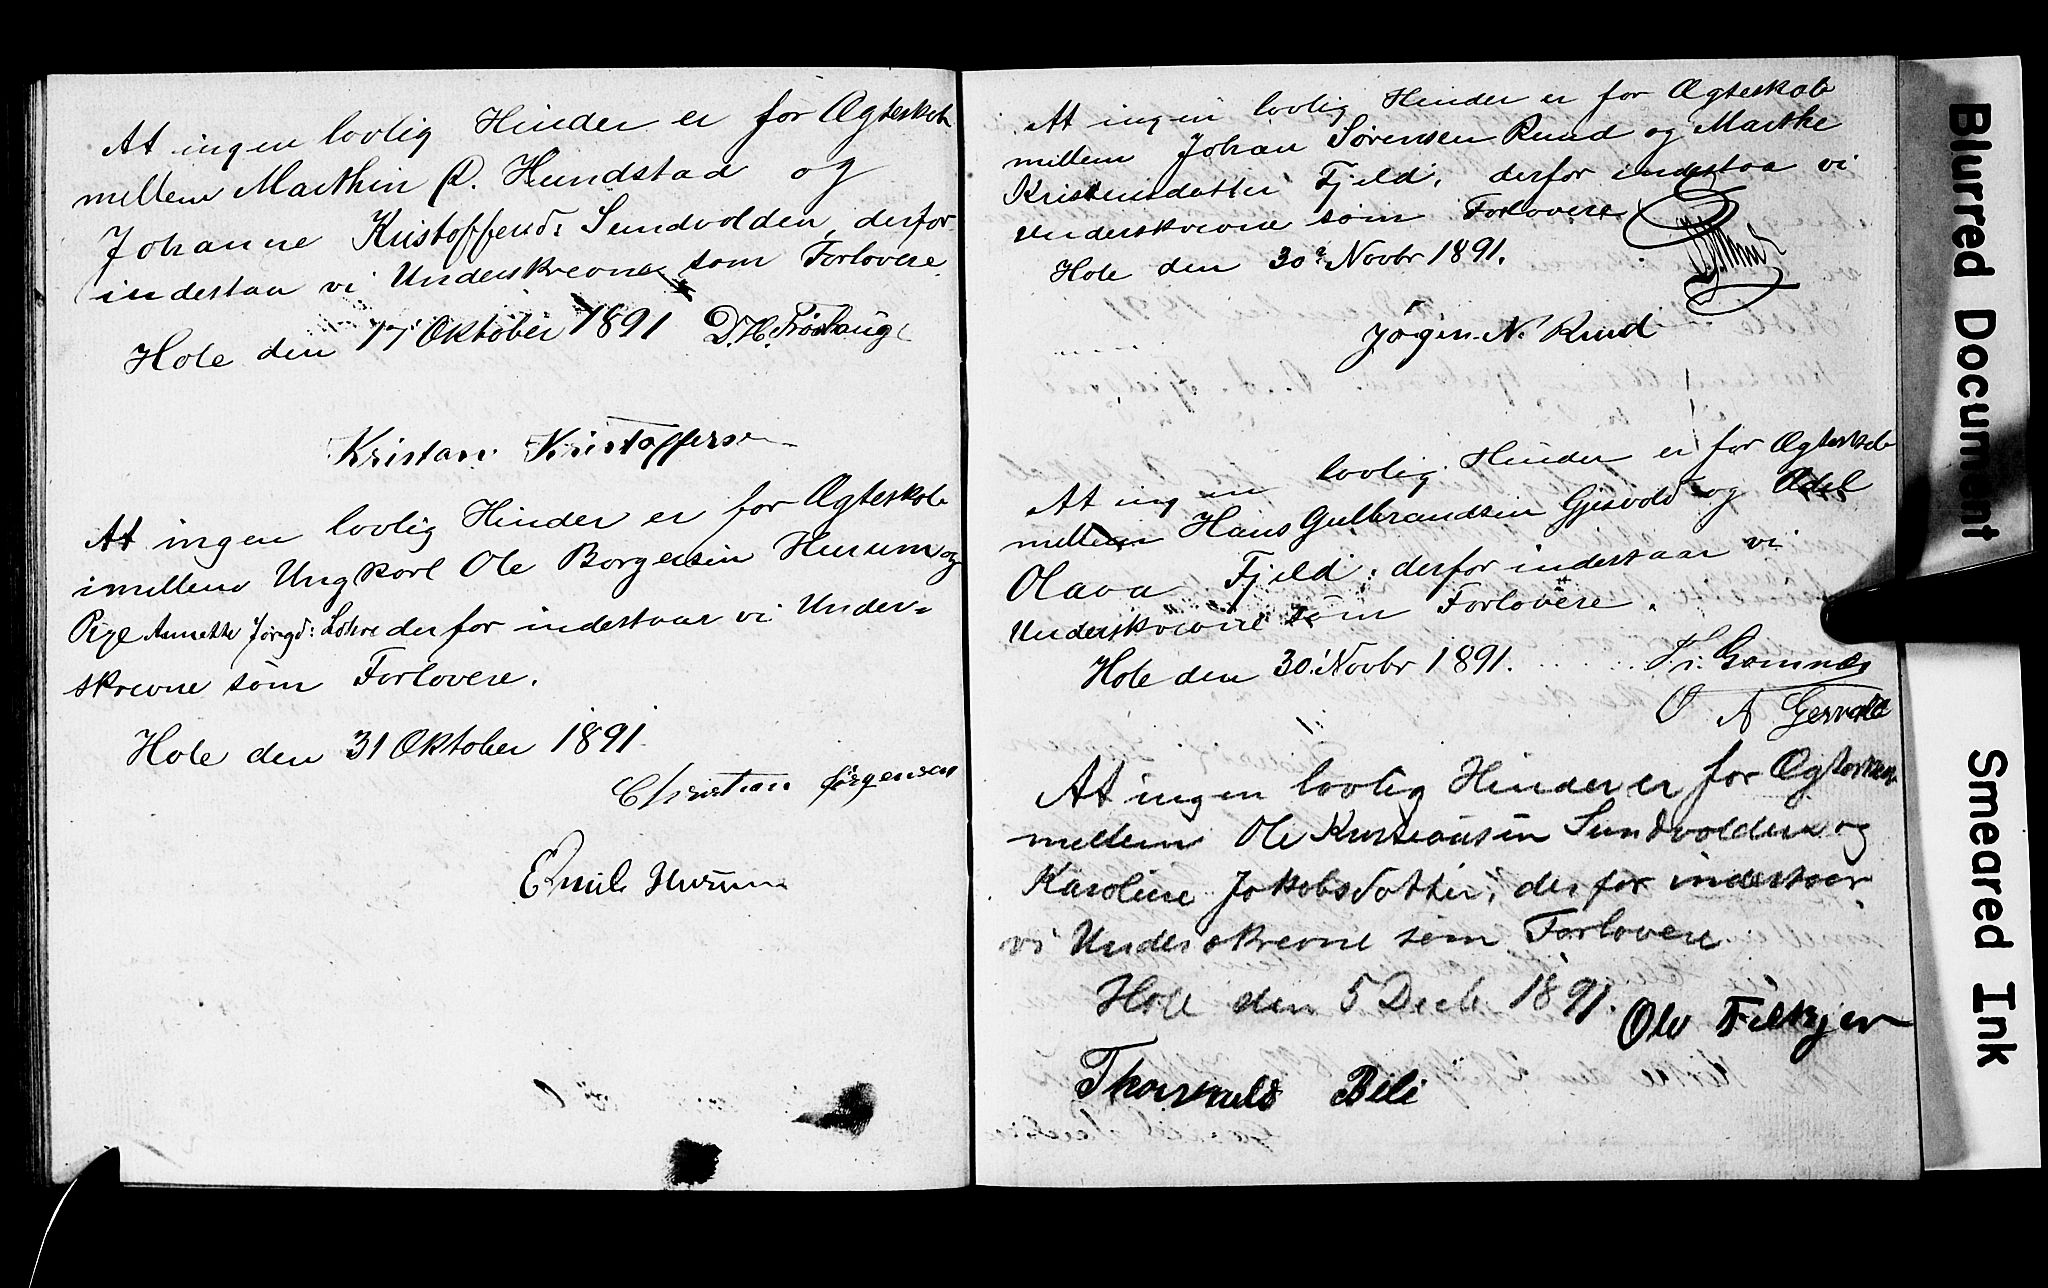 At ingen lovlig Hinder er for Ægteskab
mellem Marthin P. Hundstad og
Johanne Kristoffersd: Sundvolden, derfor
indestaa vi Underskrevne som Forlovere
Hole den 17 Oktober 1891 D. H. Frøshaug
Kristan Kristoffersen
At ingen lovlig Hinder er for Ægteskab
imellem Ungkarl Ole Borgersen Hurum og
Pige Annette Jørgd: Løhre derfor indestaar vi Under=
skrevne som Forlovere.
Hole den 31 Oktober 1891
Christian Jørgensen
Emil Hurum
At ingen lovlig Hinder er for Ægteskab
mellem Johan Sørensen Ruud og Marthe
Kristensdatter Fjeld, derfor indestaa vi
Underskrevne som Forlovere
Hole den 30 Novbr 1891.
Jørgen N. Ruud
At ingen lovlig Hinder er for Ægteskab
mellem Hans Gulbrandsen Gjesvold og Adel
Olava Fjeld; derfor indestaar vi
Underskrevne som Forlovere.
Hole den 30 Novbr 1891.
Gomnæs
O A Gesvold
At ingen lovlig Hinder er for Ægteskab
mellem Ole Kristiansen Sundvolden og
Karoline Jakobsdatter; derfor indestaar
vi Underskrevne som Forlovere
Hole den 5 Decb. 1891.
Ole Fekjær
Thorvald Bili
Blurred Document
Smeared Ink